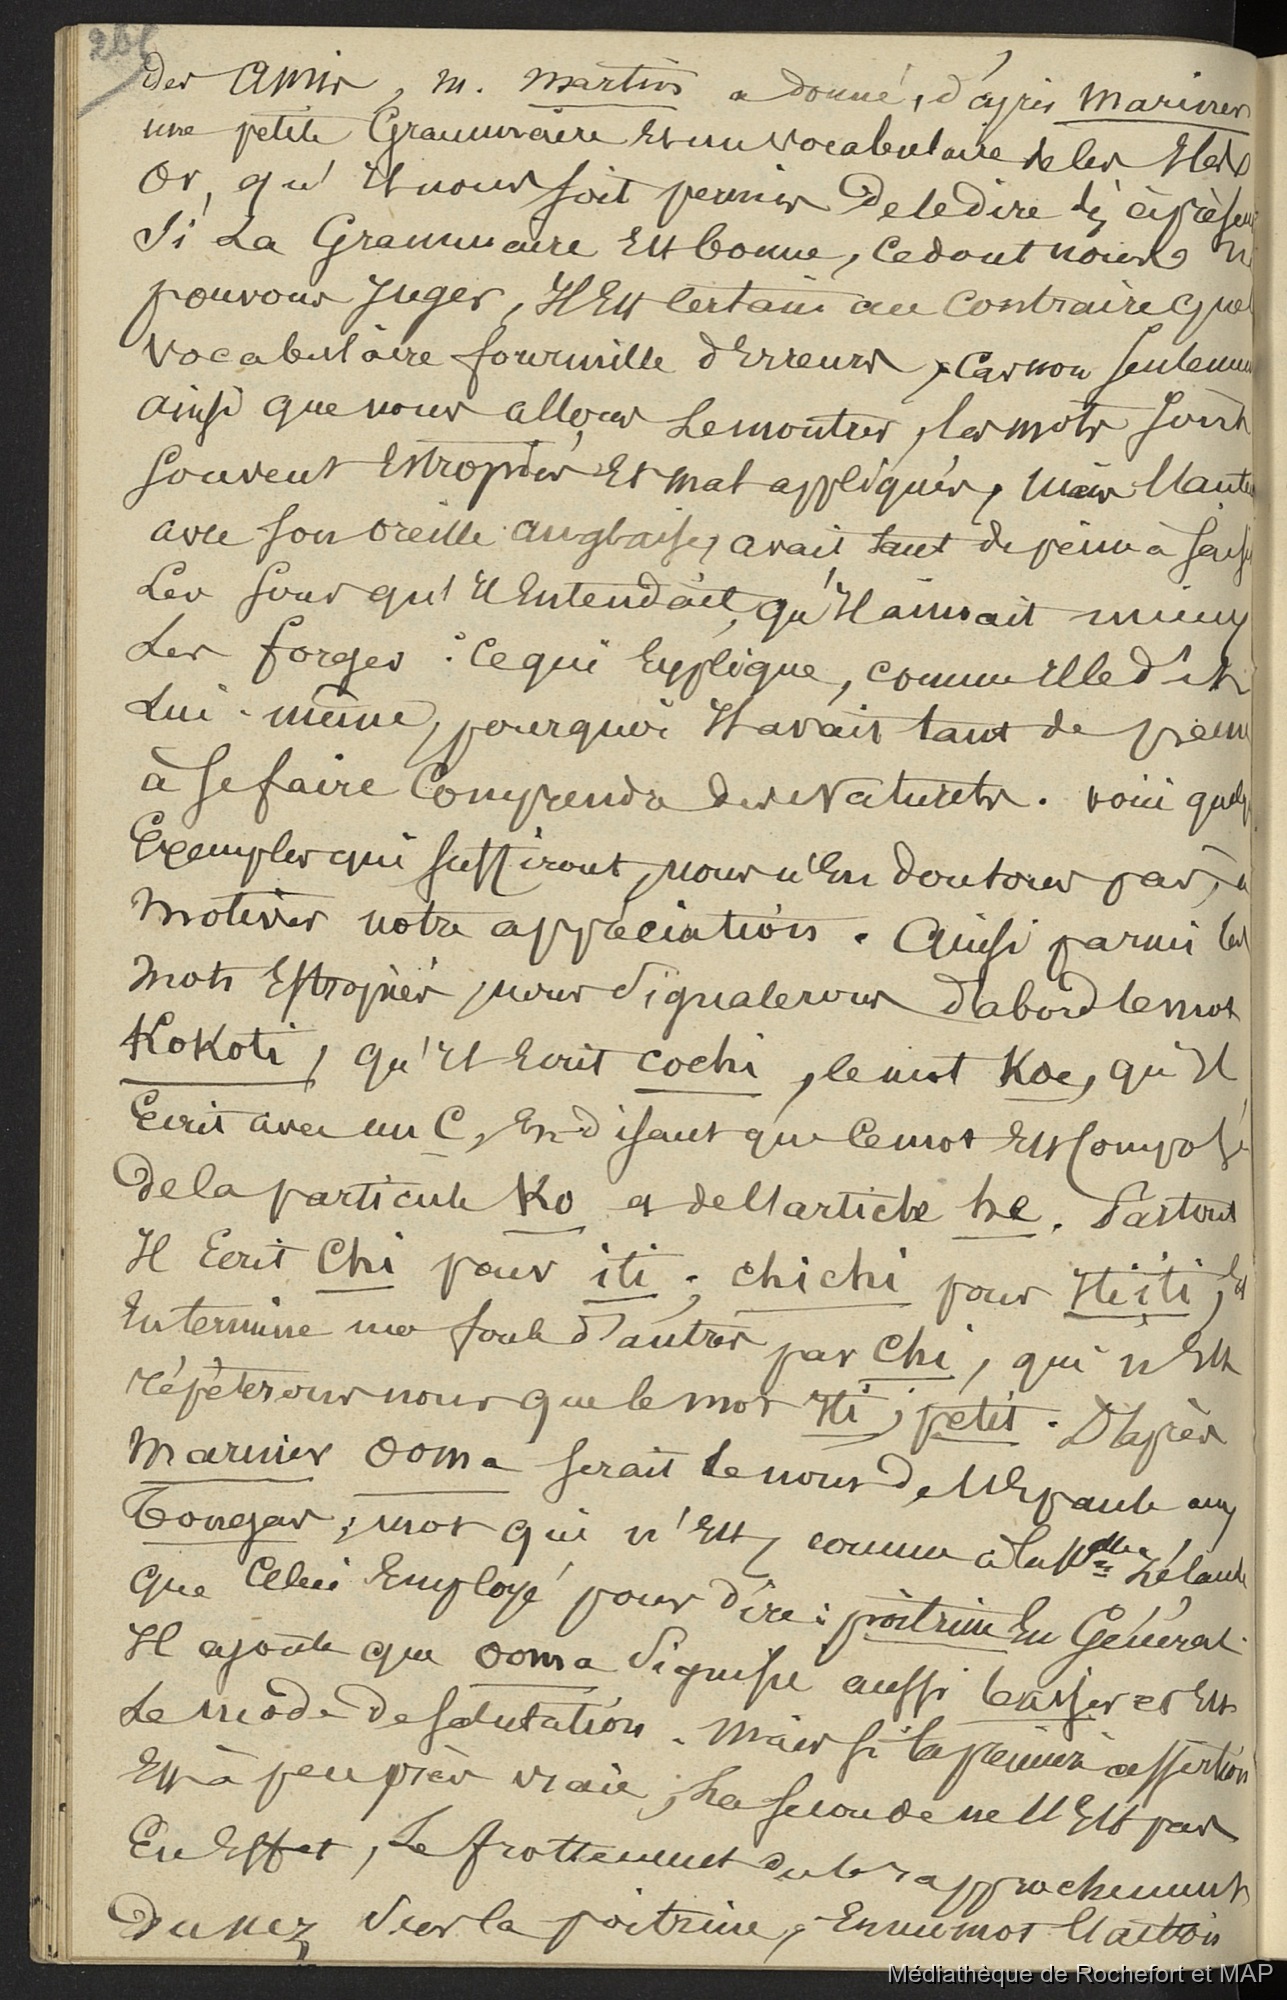 266
des amis, M. Martin a donné, d'après Mariner
une petite Grammaire Et un vocabulaire de les Iles
Or, qu'Il nous soit permis De le dire dès à présen
Si La Grammaire Est bonne, ce dont nous n
pouvons Juger, Il Est certain au contraire que
vocabulaire fourmille d'Erreurs, car non seuleme
ainsi que nous allons Le montrer, les mots sont
souvent Estropiés Et mal appliqués, mais l'auteu
avec son oreille anglaise, avait tant de peine à sais
Les sons qu'Il Entendait, qu'Il aimait mieux
Les forger : ce qui Explique, comme Il le dit
Lui-même, pourquoi Il avait tant de pein
à se faire Comprendre des Naturels. voici quelq
Exemples qui suffiront, nous n'En doutons pas, à
Motiver notre appréciation. Ainsi parmi les
Mots Estropiés, nous signalerons d'abord le mot
Kokoti, qu'Il Ecrit cochi, le mot Koe, qu'Il
Ecrit avec un C, En disant que ce mot Est Composé
De la particule Ko et de l'article he. Partout
Il Ecrit Chi pour iti ; chichi pour Itiiti, Et
En termine une foule d'autres par Chi, qui n'Est
répèterons nous que le mot Iti, petit. D'après
Mariner Ooma serait le nom De l'Epaule aux
Tongas, mot qui n'Est, comme à la Nlle Zélande
Que Celui Employé pour dire : poitrine En Général.
Il ajoute que ooma signifie aussi baiser et Est
Le mode De salutation. Mais si la première assertion
Est à peu près vraie, La seconde ne l'Est pas
En Effet, Le frottement ou le rapprochement
Du nez sur la poitrine, En un mot l'action
Médiathèque de Rochefort et MAP